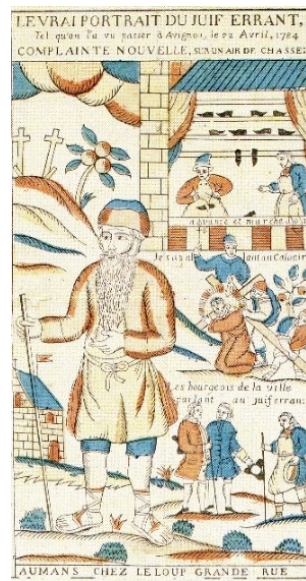 LE VRAI PORTRAIT DU JUIF ERRANT,
Tel qu'on l'a vu passer à Avignon, le 22 Avril, 1784
COMPLAINTE NOUVELLE, SUR UN AIR DE CHASSE
avance et marche donc
Jesus allant au Calvaire
Les bourgeois de la ville
parlant au juif errant
AU MANS CHEZ LELOUP GRANDE RUE